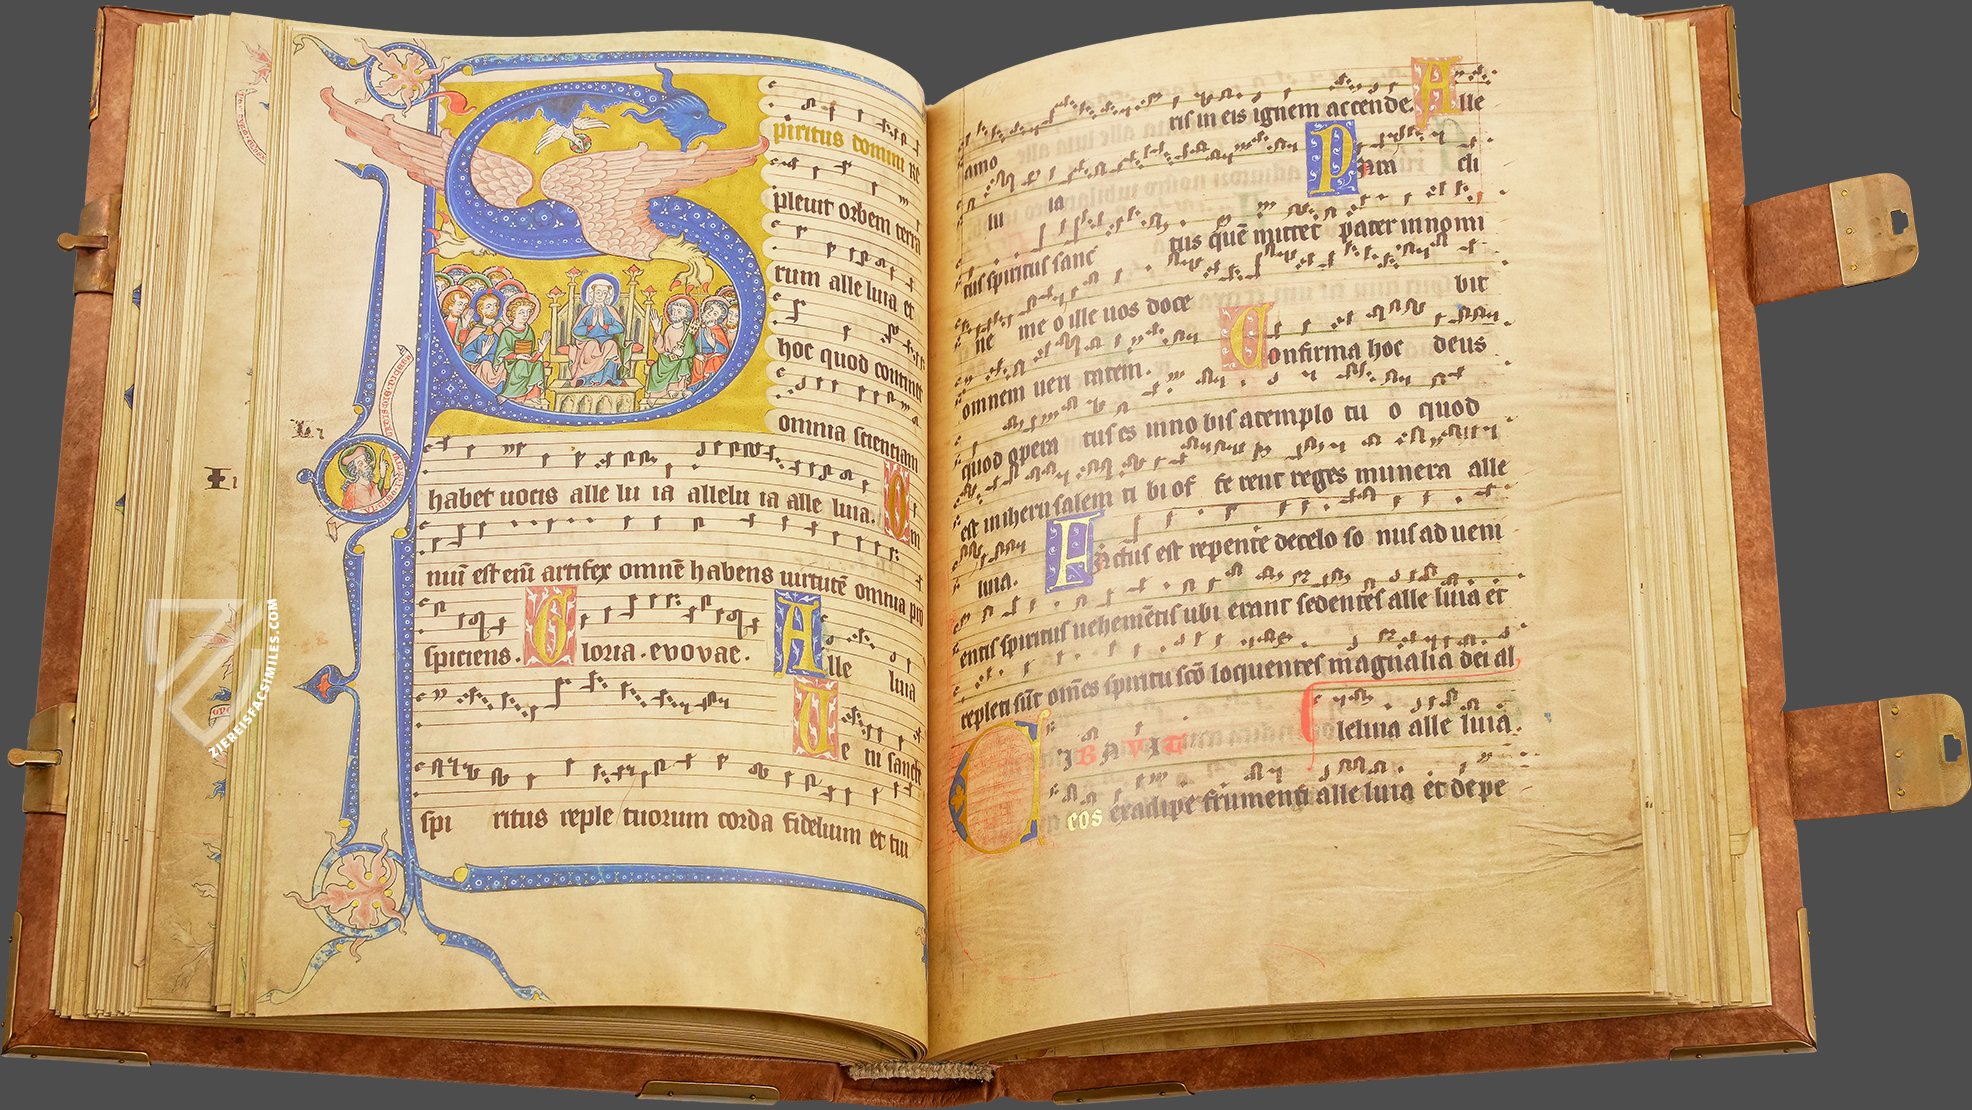 piritus domini re
pleuit orbem terra
rum alleluia et
hoc quod continet
omnia scientiam
habet uocis alle lu ia allelu ia alle luia. Om
niū est eni artifex omnē habens uirtutē omnia pro
spiciens. Gloria. evovae. Alle luia
Ve ni sancte
spi ritus reple tuorum corda fidelium et tui
amo ris in eis ignem accende. Alle
lu ia Para cli
tus spiritus sanc tus quē mittet pater in nomi
ne me o ille uos doce bit
omnem ueri tatem. Confirma hoc deus
quod opera tus es in no bis a templo tu o quod
est in iherusalem ti bi of fe rent reges munera alle
luia. Factus est repente de celo so nus ad ueni
entis spiritus uehemētis ubi erant sedentes alle luia et
repleti sūt om̄es spiritu sc̄o loquentes magnalia dei al
CIBAVIT leluia alle luia.
eos ex adipe frumenti alle luia et de pe
ZIEREISFACSIMILES.COM